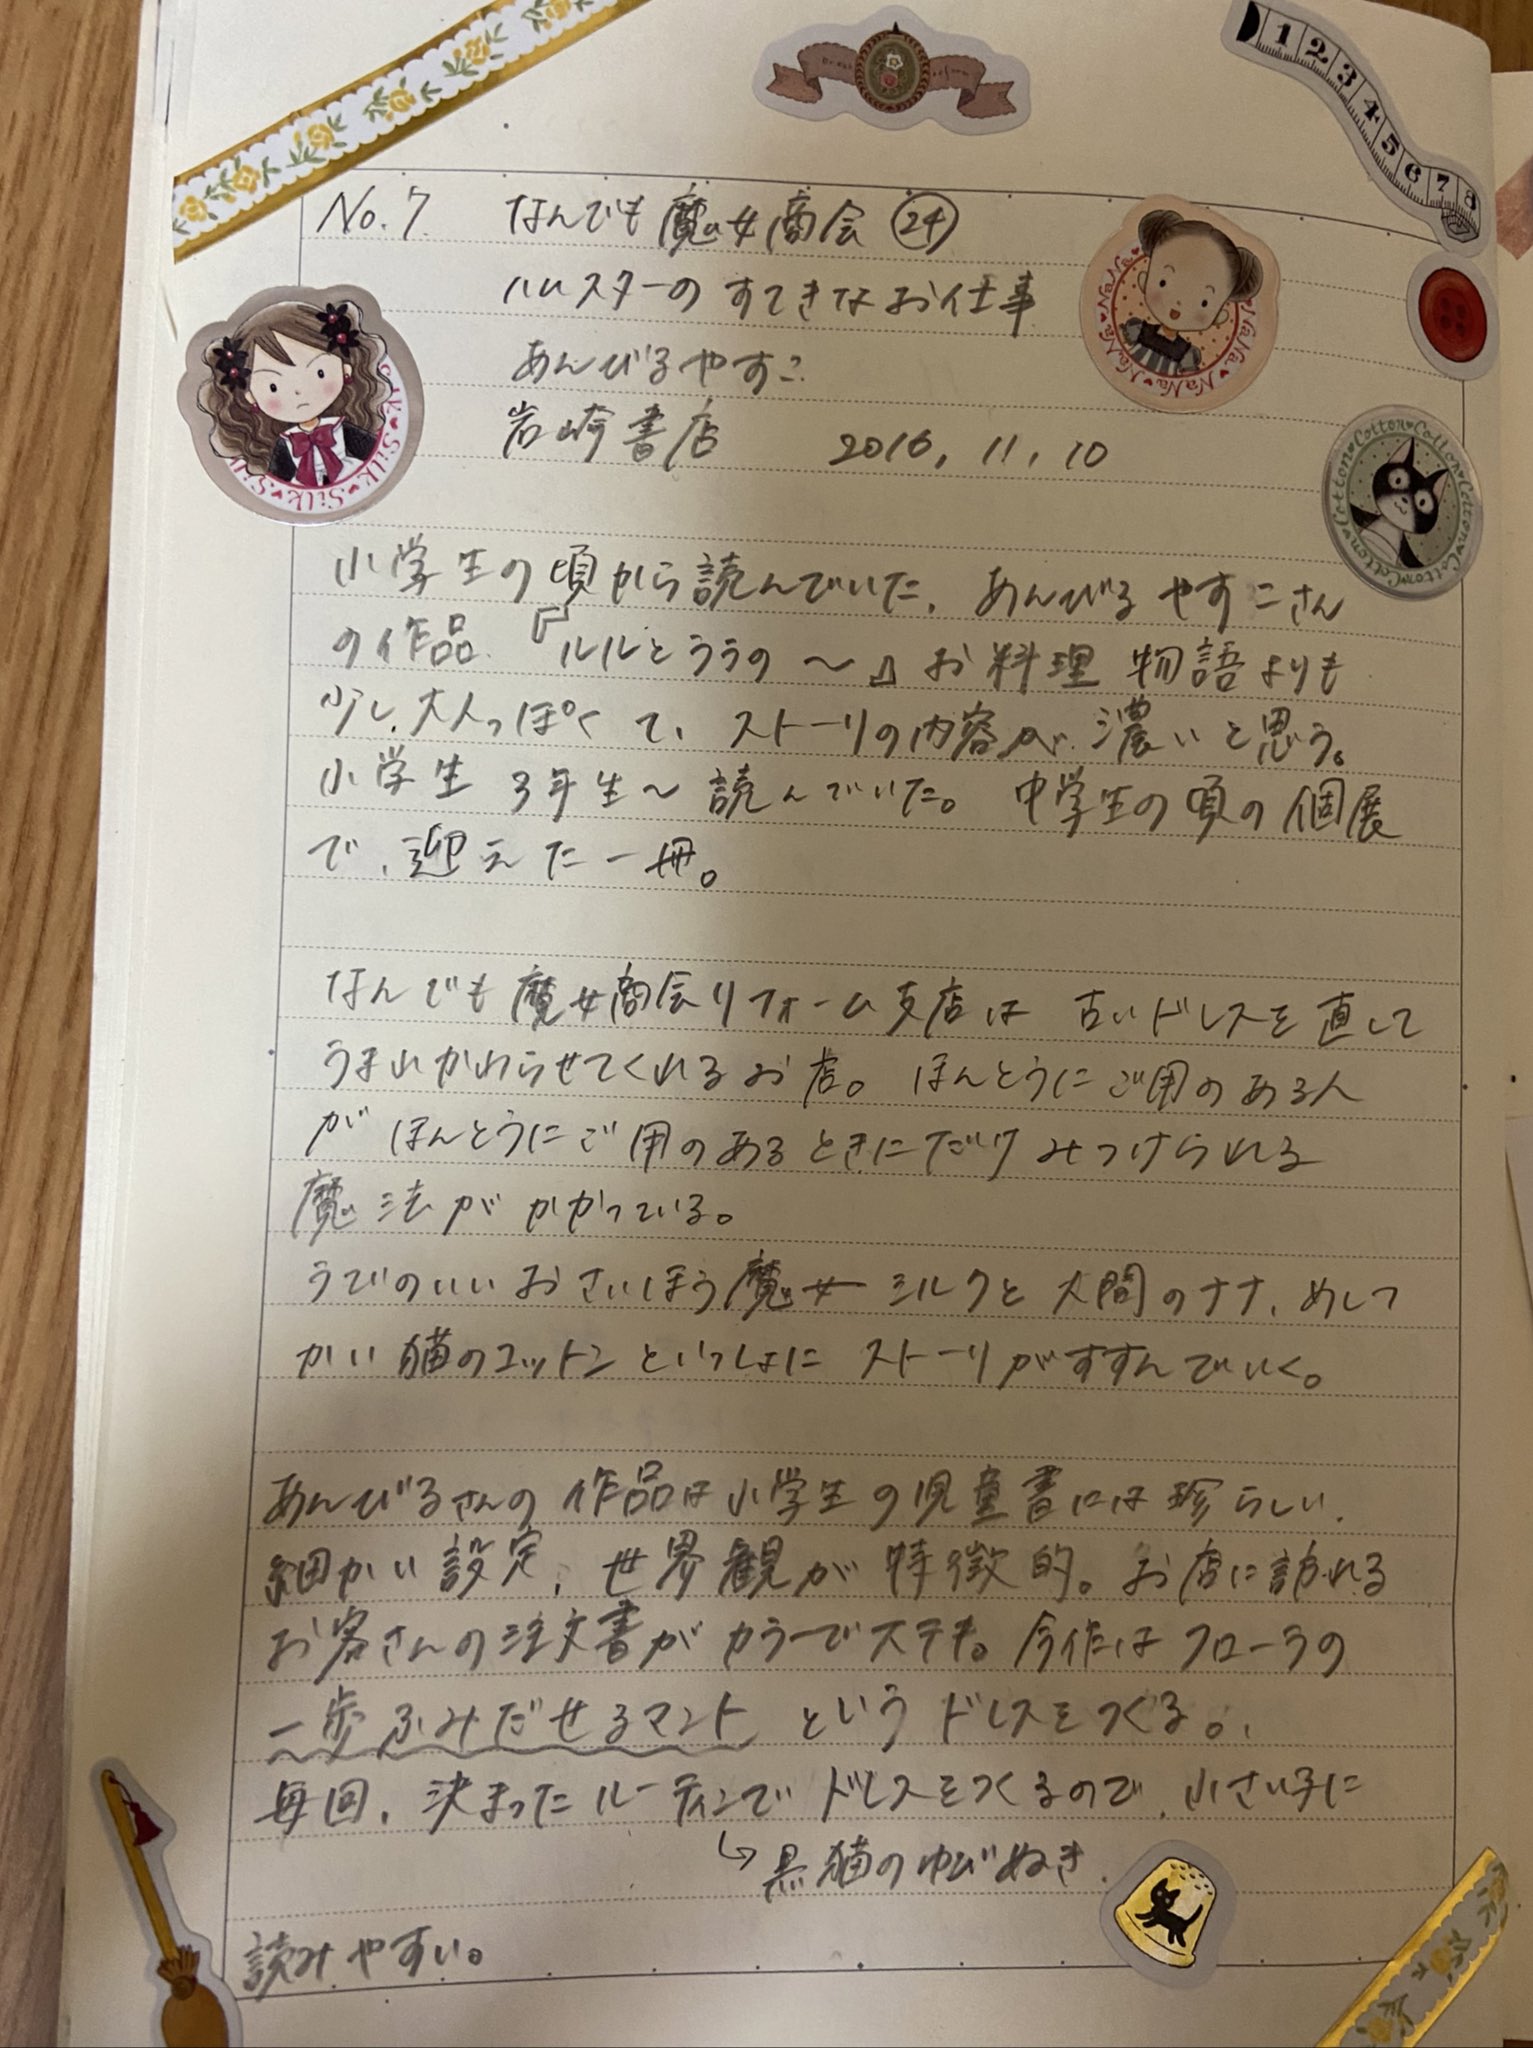 No.7. なんでも魔女商会 ㉔
ハムスターの すてきなお仕事
あんびるやすこ
岩崎書店 2016. 11. 10
小学生の頃から読んでいた、あんびるやすこさん
の作品、『ルルとララの～』お料理物語よりも
少し、大人っぽくて、ストーリの内容が、濃いと思う。
小学生3年生～読んでいた。中学生の頃の個展
で、迎えた一冊。
なんでも魔女商会リフォーム支店は 古いドレスを直して
うまれかわらせてくれるお店。ほんとうにご用のある人
がほんとうにご用のあるときにだけみつけられる
魔法がかかっている。
うでのいいおさいほう魔女 シルクと人間のナナ、めしつ
かい猫のコットンといっしょに ストーリがすすんでいく。
あんびるさんの作品は小学生の児童書には珍らしい、
細かい設定、世界観が特徴的。お店に訪れる
お客さんの注文書がカラーでステキ。今作はフローラの
一歩ふみだせるマント というドレスをつくる。
毎回、決まったルーティンでドレスをつくるので、小さい子に
↳黒猫のゆびぬき
読みやすい。
Silk♥Silk♥Silk
NaNa♥NaNa♥NaNa♥NaNa
Cotton♥Cotton♥Cotton♥Cotton
1 2 3 4 5 6 7 8